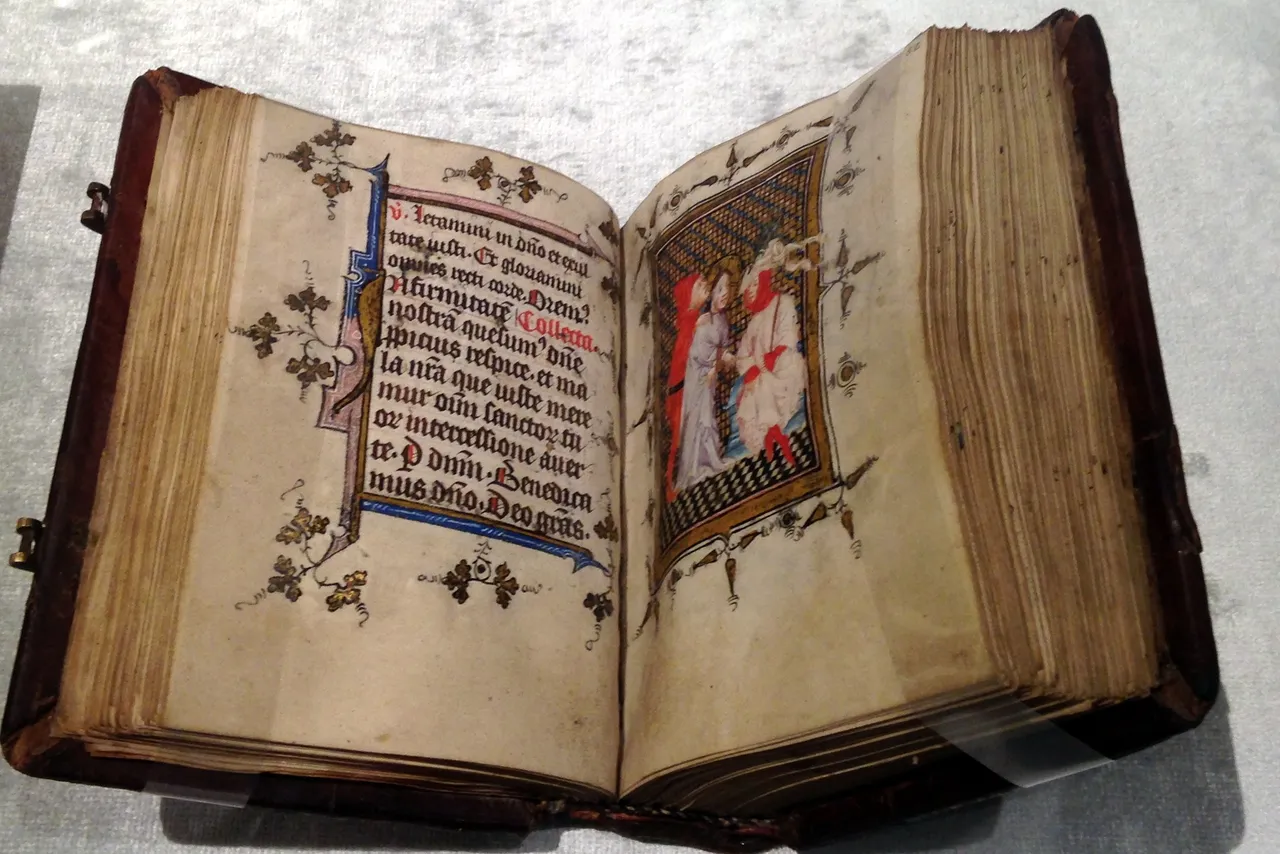 v̇. Letamini in dn̄o et exul
tate iusti. Et gloriamini
omnes recti corde. Oremꝰ
Infirmitatē Collecta.
nostrā quesumꝰ dn̄e
ppicius respice. et ma
la nr̄a que iuste mere
mur oīm sanctoꝝ tu
or intercessione auer
te. P dnm̄. Benedica
mus dn̄o. Deo gr̄as.